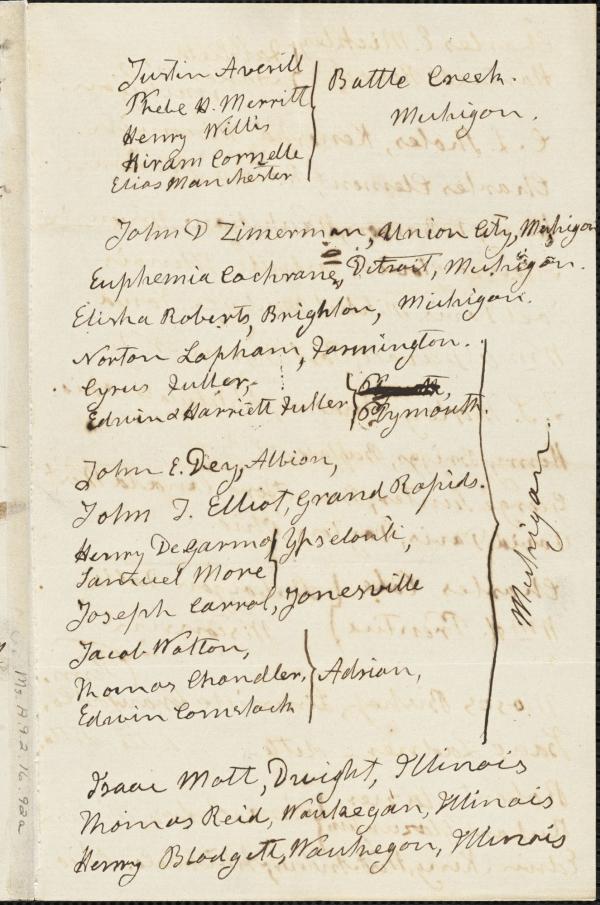 Justin Averill
Phebe H. Merritt
Henry Willis
Hiram Cornelle
Elias Manchester
Battle Creek.
Michigan.
John D Zimerman, Union City, Michigan
Euphemia Cochrane, Detroit, Michigan.
Elisha Roberts, Brighton, Michigan.
Norton Lapham, Farmington.
Cyrus Fuller,
Edwin & Harriett Fuller
Plymouth.
John E. Dey, Albion,
John T. Elliot, Grand Rapids.
Henry DeGarmo
Samuel More
Ypselonti,
Joseph Carrol, Jonesville
Jacob Walton,
Thomas Chandler,
Edwin Comstock
Adrian,
Michigan
Isaac Mott, Dwight, Illinois
Thomas Reid, Waukegan, Illinois
Henry Blodgett, Waukegon, Illinois
Ms. A.9.2 16. 92a